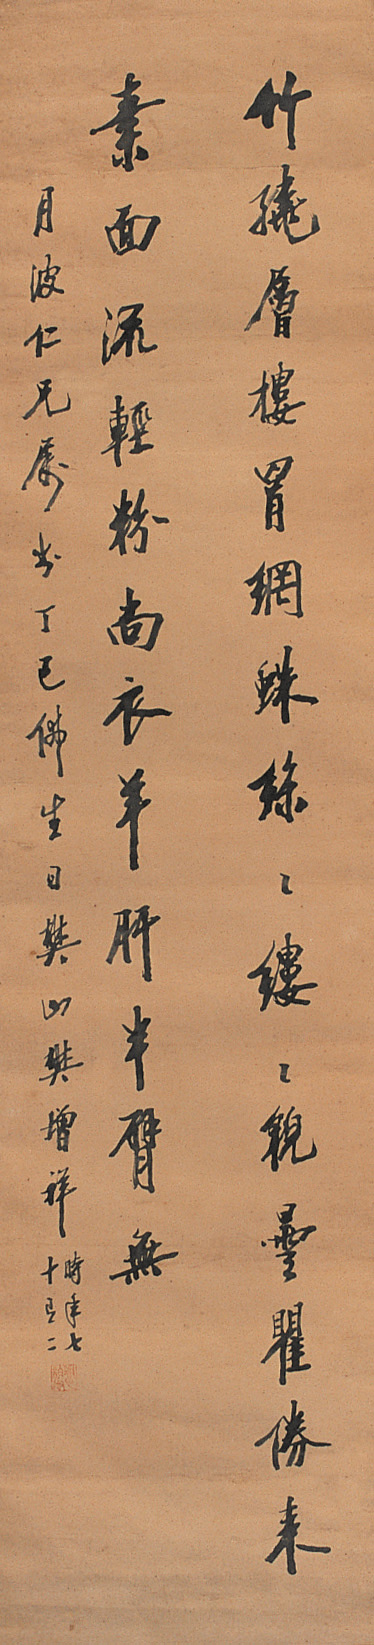 竹繞層樓罥網蛛絲〻縷〻貌曇瞿勝來
素面流輕粉尚衣羊肝半臂無
月波仁兄屬書丁巳佛生日樊山樊增祥
時年七
十有二